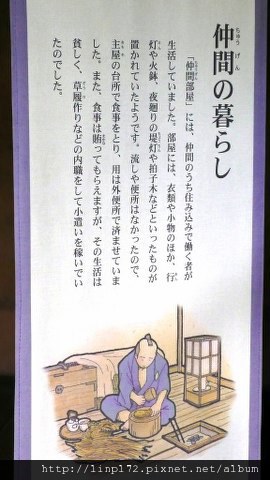 ちゅうげん
仲間の暮らし
「仲間部屋」には、仲間のうち住み込みで働く者が
生活していました。部屋には、衣類や小物のほか、行
灯や火鉢、夜廻りの提灯や拍子木などといったものが
置かれていたようです。流しや便所はなかったので、
主屋の台所で食事をとり、用は外便所で済ませていま
した。また、食事は賄ってもらえますが、その生活は
貧しく、草履作りなどの内職をして小遣いを稼いでい
たのでした。
http://linp172.pixnet.net/album